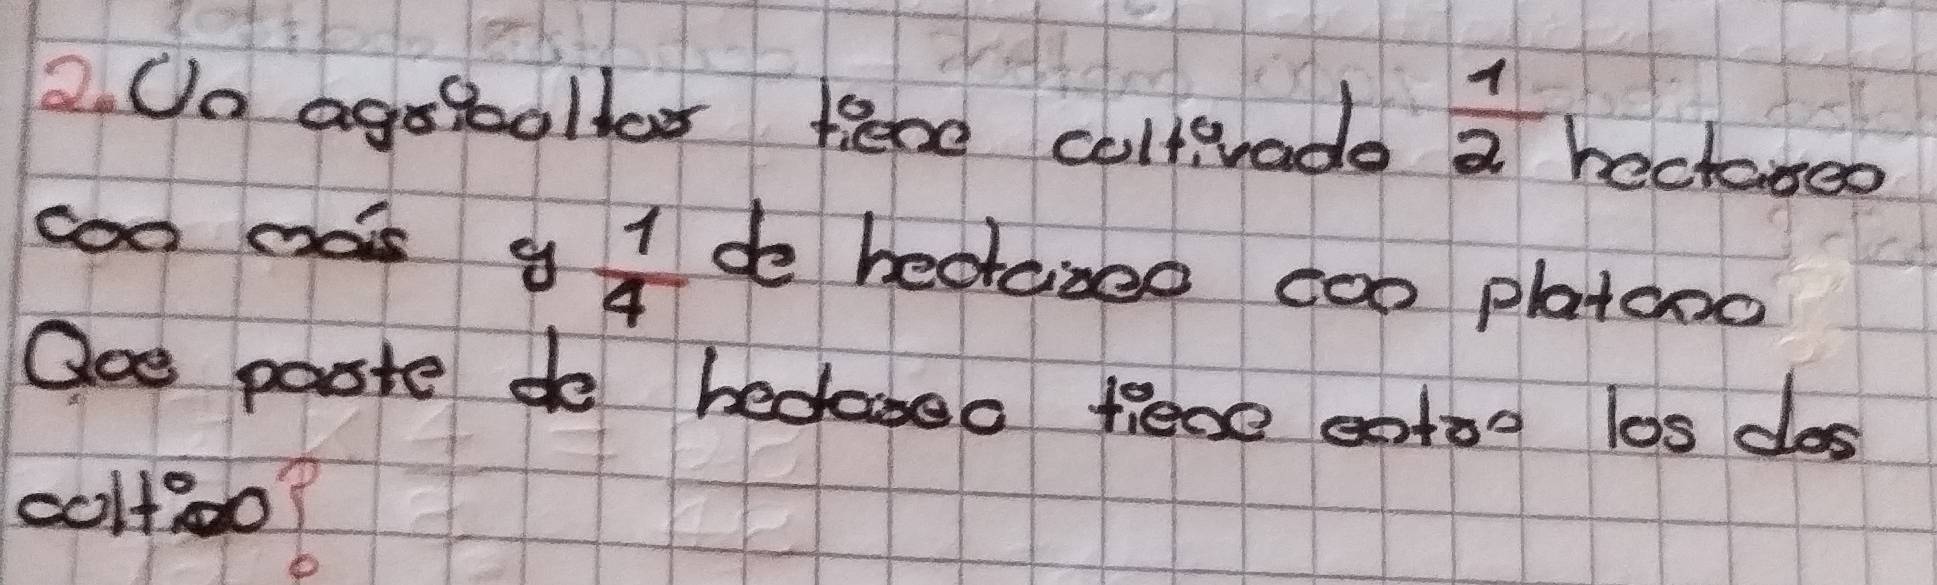 2. Un agricultor tiene cultivado 1/2 hectarea
con maís y 1/4 de hectarea con platano
Que parte de hectarea tiene entre los dos
cultivo?